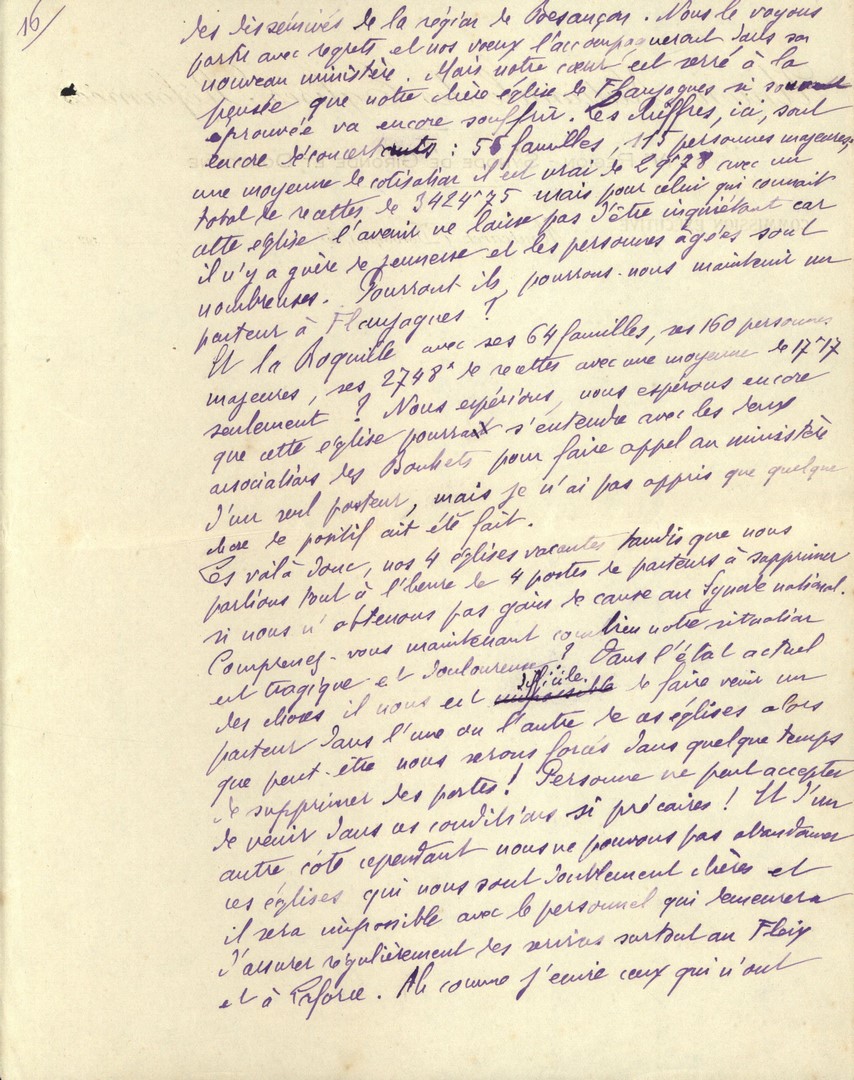 16/
des disséminés de la région de Besançon. Nous le voyons
partir avec regrets et nos vœux l'accompagneront dans son
nouveau ministère. Mais notre cœur est serré à la
pensée que notre chère église de Flaujagues si souvent
éprouvée va encore souffrir. Les chiffres, ici, sont
encore déconcertants : 56 familles, 115 personnes majeures,
une moyenne de cotisation il est vrai de 29f78 avec un
total de recettes de 3424f75 mais pour celui qui connait
cette église l'avenir ne laisse pas d'être inquiétant car
il n'y a guère de jeunesse et les personnes âgées sont
nombreuses. Pourront-ils, pourrons-nous maintenir un
pasteur à Flaujagues ?
Et la Roquille avec ses 64 familles, ses 160 personnes
majeures, ses 2748f de recettes avec une moyenne de 17f17
seulement ? Nous espérions, nous espérons encore
que cette église pourra s'entendre avec les deux
associations des Bouhets pour faire appel au ministère
d'un seul pasteur, mais je n'ai pas appris que quelque
chose de positif ait été fait.
Les voilà donc, nos 4 églises vacantes tandis que nous
parlions tout à l'heure de 4 postes de pasteurs à supprimer
si nous n'obtenons pas gain de cause au Synode national.
Comprenez-vous maintenant combien notre situation
est tragique et douloureuse ? Dans l'état actuel
des choses il nous est difficile de faire venir un
pasteur dans l'une ou l'autre de ces églises alors
que peut-être nous serons forcés dans quelque temps
de supprimer des postes ! Personne ne peut accepter
de venir dans ces conditions si précaires ! Et d'un
autre côté cependant nous ne pouvons pas abandonner
ces églises qui nous sont doublement chères et
il sera impossible avec le personnel qui demeurera
d'assurer régulièrement des services surtout au Fleix
et à Laforce. Ah comme j'envie ceux qui n'ont